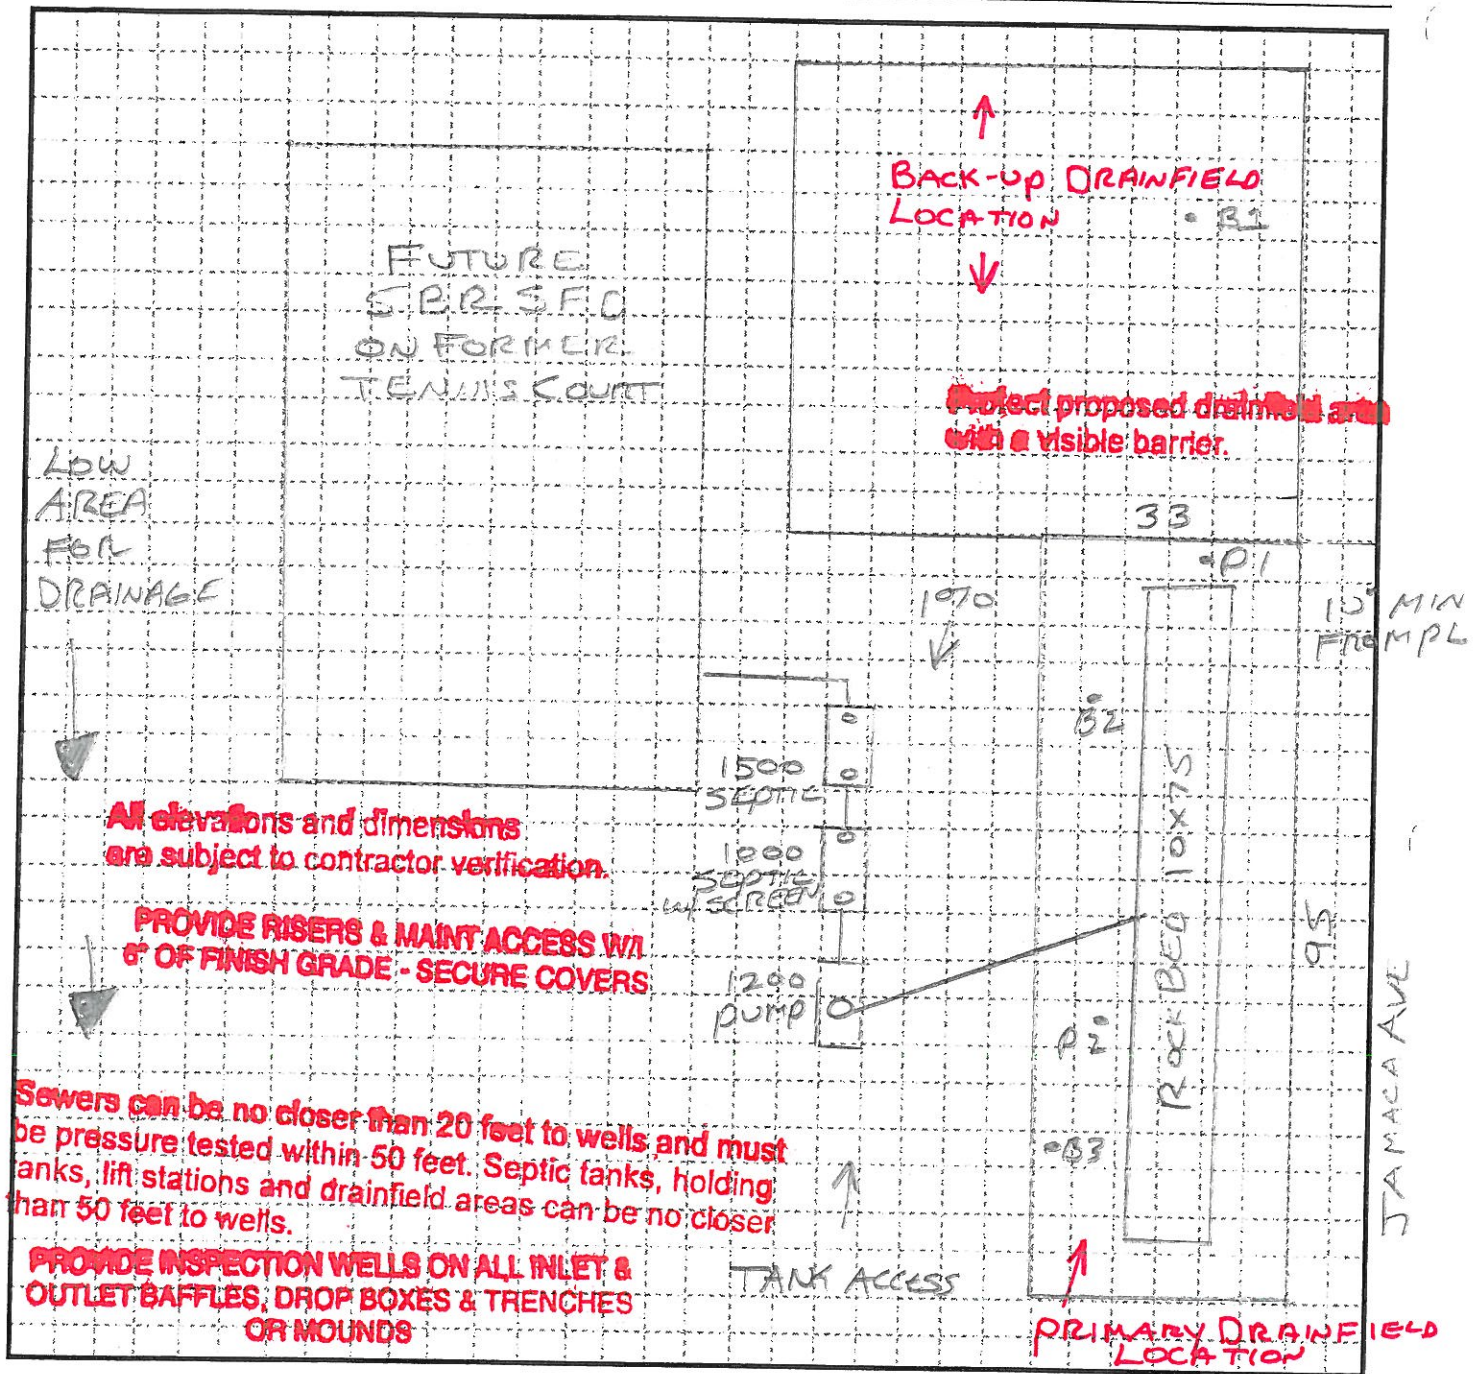 BACK-UP DRAINFIELD
LOCATION
• B1
FUTURE
5 BR SFD
ON FORMER
TENNIS COURT
Protect proposed drainfield area
with a visible barrier.
LOW
AREA
FOR
DRAINAGE
33
P1
1%
10' MIN
FROM PL
B2
1500
SEPTIC
All elevations and dimensions
are subject to contractor verification.
1000
SEPTIC
W/ SCREEN
ROCK BED 10x75
95
PROVIDE RISERS & MAINT ACCESS W/I
6" OF FINISH GRADE - SECURE COVERS
1200
PUMP
P2
JAMACA AVE
Sewers can be no closer than 20 feet to wells and must
be pressure tested within 50 feet. Septic tanks, holding
tanks, lift stations and drainfield areas can be no closer
than 50 feet to wells.
B3
PROVIDE INSPECTION WELLS ON ALL INLET &
OUTLET BAFFLES, DROP BOXES & TRENCHES
OR MOUNDS
TANK ACCESS
PRIMARY DRAINFIELD
LOCATION